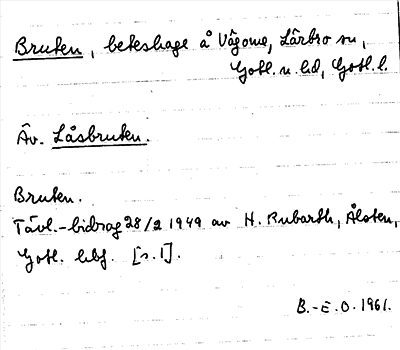 Bruten, beteshage å Vägome, Lärbro sn,
Gotl. n. hd, Gotl. l.
Äv. Låsbruten.
Bruten.
Tävl.-bidrag 28/2 1949 av H. Rubarth,
Gotl. [s. 1].
B.-E. O. 1961.